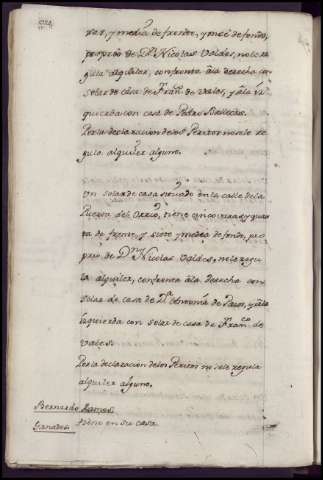 ras, y media de frente, y once de fondo,
proprio de Dn Nicolas Valdes, no le re
gula alquiler, confronta âla derecha con
solar de casa de Franco. de Vales, y âla iz
quierda con casa de Pedro Ballecas.
Por la declarazion de los Peritos no se le re
gula alquiler alguno.
Un solar de casa situado en la calle de la
Puerta del tiene cinco varas y quar
ta de frente, y siete y media de fondo, pro
prio de Dn. Nicolas Valdes, no le regu
la alquiler, confronta âla derecha con
solar de casa de Da. Antonia de Pazos, y âla
izquierda con solar de casa de Franco. de
Vales.
Por la declarazion de los Peritos no se le regula
alquiler alguno.
Bernardo Ramos
Ganados tiene en su casa